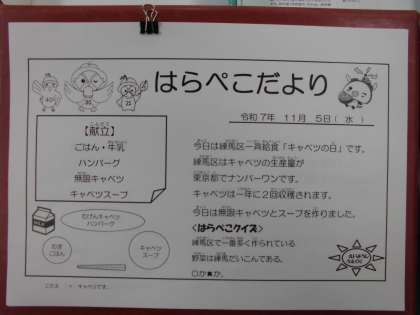 はらぺこだより
令和7年 11月 5日( 水 )
【献立】
ごはん・牛乳
ハンバーグ
無限キャベツ
キャベツスープ
今日は練馬区一斉給食「キャベツの日」です。
練馬区はキャベツの生産量が
東京都でナンバーワンです。
キャベツは一年に２回収穫されます。
今日は無限キャベツとスープを作りました。
むげんキャベツ
ハンバーグ
むぎ
ごはん
キャベツ
スープ
<はらぺこクイズ>
練馬区で一番多く作られている
野菜は練馬だいこんである。
○か✕か。